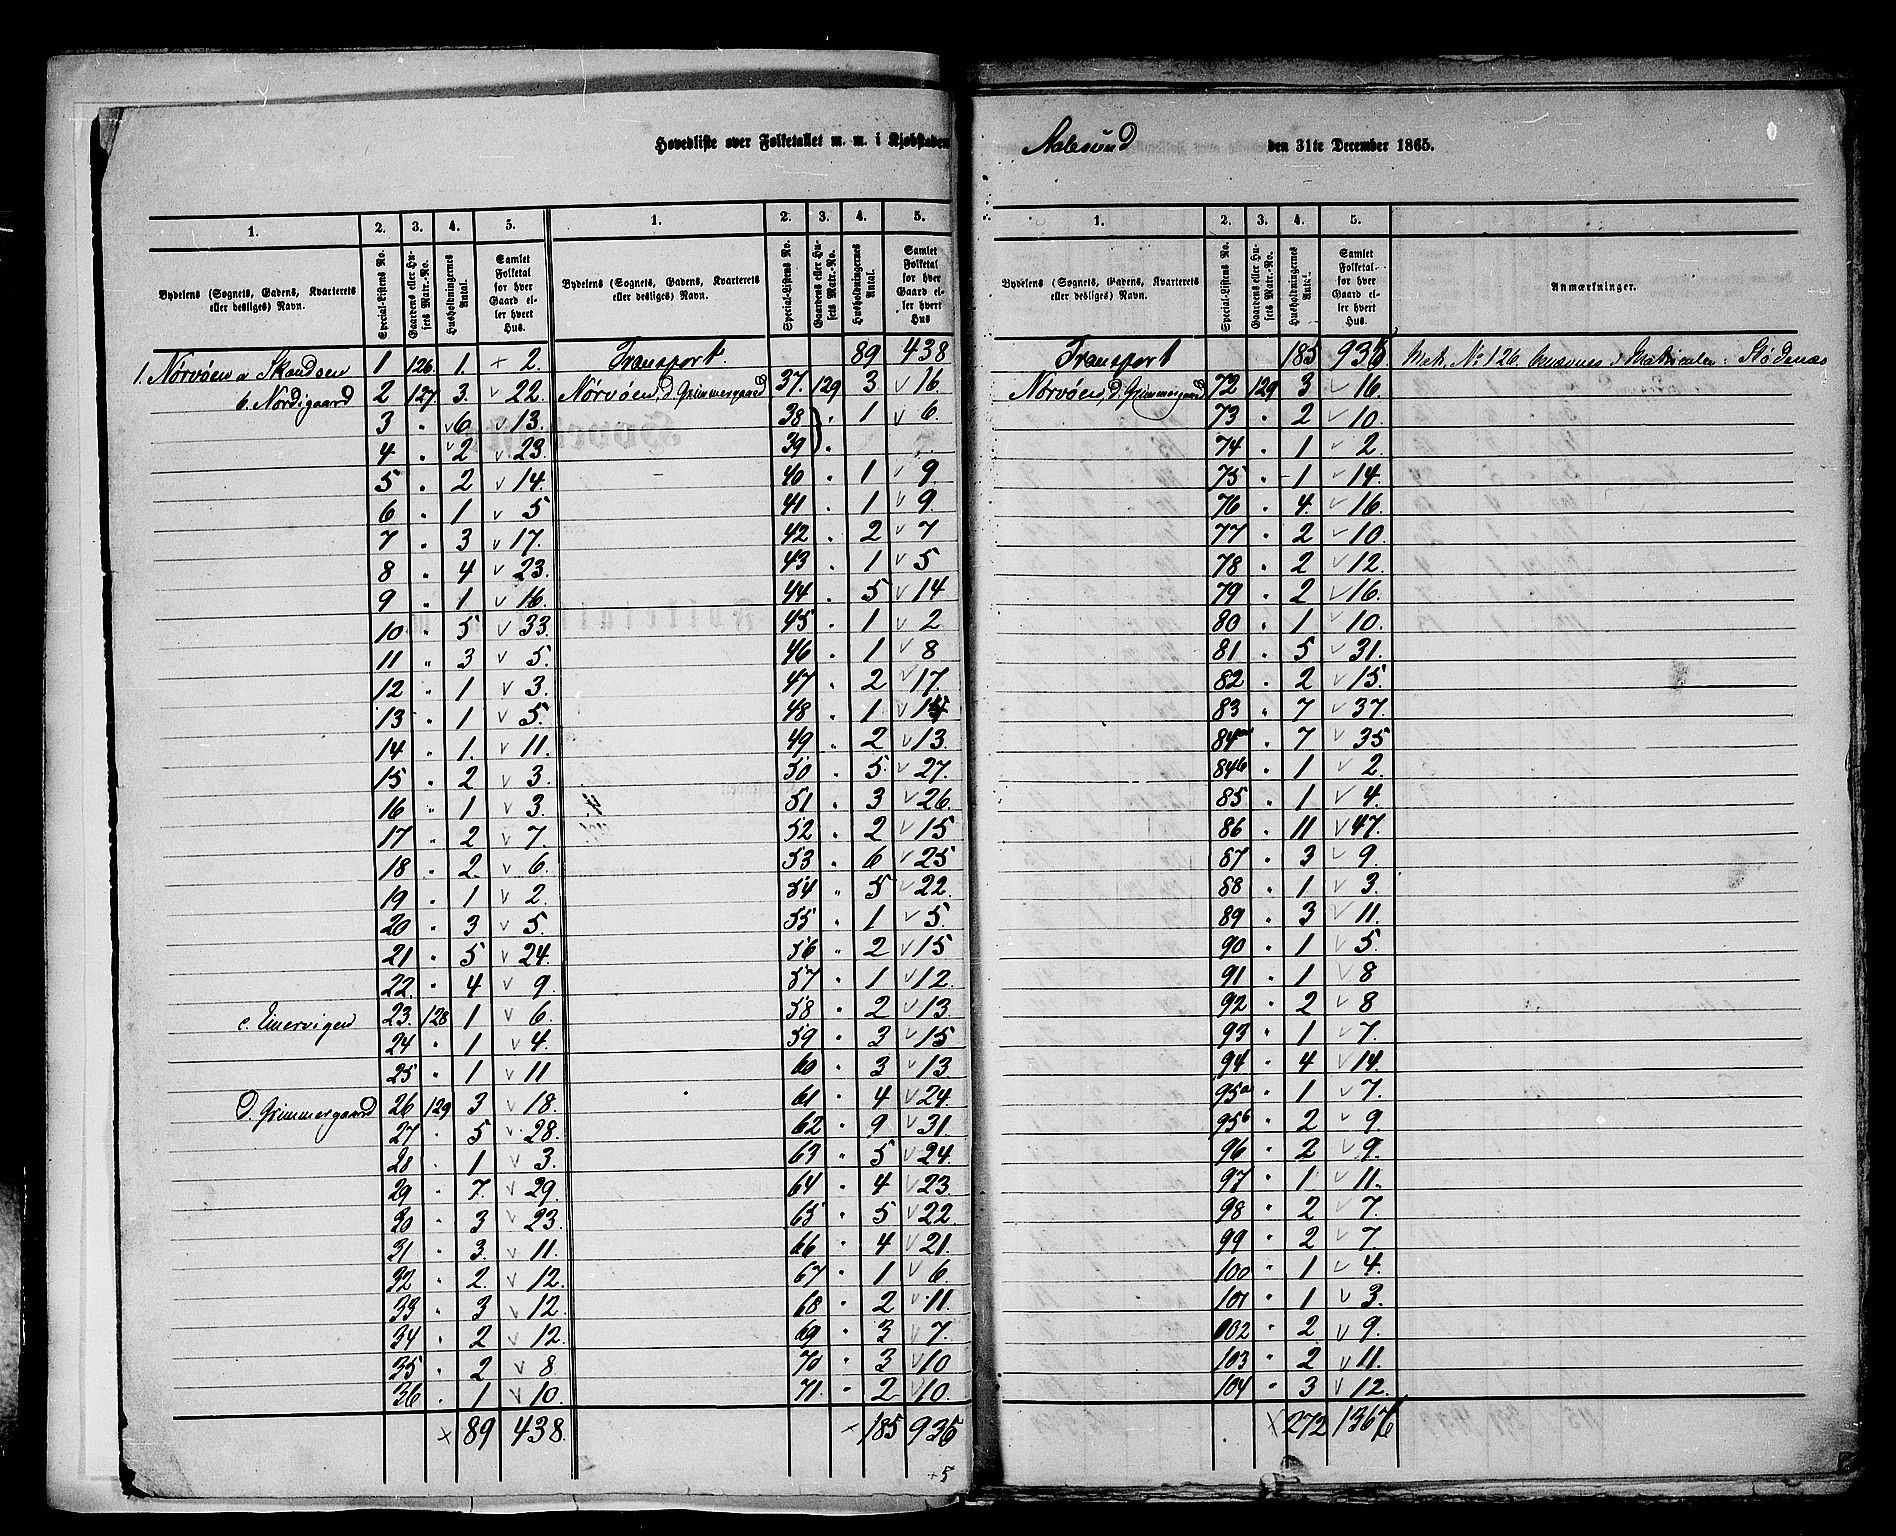 Hovedliste over Folketallet m. m. i Kjøbstaden Aalesund den 31te December 1865.
1. 2. 3. 4. 5. 1. 2. 3. 4. 5.
Bydelens (Sognets, Gadens, Kvarterets eller desliges) Navn. Special-Listens No. Gaardens eller Husets Matr.-No. Husholdningernes Antal. Samlet Folketal for hver Gaard eller hvert Hus. Bydelens (Sognets, Gadens, Kvarterets eller desliges) Navn. Special-Listens No. Gaardens eller Husets Matr.-No. Husholdningernes Antal. Samlet Folketal for hver Gaard eller hvert Hus
1. Nørvøen a Skandsen 1 126. 1. × 2. Transport. 89 438
b. Nordigaard 2 127 3. v 22. Nørvøen, d Grimmergaard 37. 129 3 v 16.
3 " v6 v 13. 38 " 1 v 6.
4 " v2 v 23. 39
5 " 2 v 14. 40 " 1 v 9.
6 " 1 v 5 41 " 1 v 9.
7 " 3 v 17. 42 " 2 v 7
8 " 4 v 23. 43 " 1 v 5
9 " 1 v 16. 44 " 5 v 14
10 " 5 v 33. 45 " 1 v 2
11 " 3 v 5. 46 " 1 v 8
12 " 1 v 3. 47 " 2 v 17.
13 " 1 v 5. 48 " 1 v
14 " 1. v 11. 49 " 2 v 13.
15 " 2 v 3. 50 " 5. v 27.
16 " 1 v 3. 51 " 3 v 26.
17 " 2 v 7. 52 " 2 v 15
18 " 2. v 6. 53 " 6 v 25
19 " 1 v 2. 54 " 5 v 22.
20 " 3 v 5. 55 " 1 v 5.
21 " 5 v 24. 56 " 2 v 15
22. " 4 v 9. 57 " 1 v 12.
23. 128 1 v 6. 58 " 2 v 13
24 " 1 v 4. 59 " 3 v 15
25 " 1 v 11 60 " 3 v 13
d. Grimmergaard 26 129 3 v 18. 61 " 4 v 24.
27 " 5 v 28. 62 " 9 v 31.
28 " 1 v 3. 63 " 5 v 24.
29 " 7. v 29. 64 " 4 v 23.
30 " 3 v 23. 65 " 5 v 22.
31 " 3. v 11. 66 " 4 v 21.
32 " 2. v 12. 67 " 1 v 6.
33 " 3 v 12. 68 " 2 v 11.
34 " 2 v 12. 69 " 3 v 7.
35 " 2 v 8 70 " 3 v 10
36. " 1 v 10. 71. " 2 v 10.
× 89 438. × 185 936
+5
1. 2. 3. 4. 5.
Bydelens (Sognets, Gadens, Kvarterets eller desliges) Navn. Special-Listens No. Gaardens eller Husets Matr.-No. Husholdningernes Antal. Samlet Folketal for hver Gaard eller hvert Hus. Anmærkninger.
Transport 185 936 Matr. No 126. i Matrikulen:
Nørvøen, d. Grimmergaard 72. 129 3 v 16.
73 " 2 v 10.
74 " 1 v 2.
75 " 1 v 14.
76 " 4. v 16.
77 " 2 v 10
78 " 2 v 12.
79 " 2 v 16.
80 " 1 v 10.
81 " 5 v 31.
82 " 2 v 15.
83 " 7 v 37.
84a " 7 v 35
84b " 1 v 2.
85 " 1 v 4.
86 " 11 v 47.
87 " 3 v 9.
88 " 1 v 3.
89 " 3 v 11.
90 " 1 v 5.
91 " 1 v 8
92 " 2 v 8
93 " 1 v 7.
94 " 4 v 14.
95a " 1 v 7.
95b " 2 v 9.
96 " 2 v 9.
97 " 1 v 11.
98 " 2 v 7.
99 " 2 v 7.
100 " 1 v 4.
101 " 1 v 3.
102 " 2 v 9.
103 " 2 v 11.
104 " 3 v 12.
× 272 1367